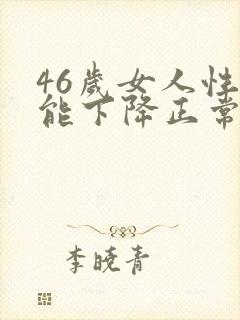 46歲女人性
能下降正常
李晓青